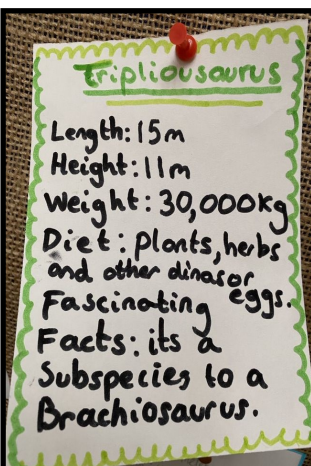 Tripliousaurus
Length: 15m
Height: 11m
Weight: 30,000kg
Diet: plants, herbs
and other dinasor
eggs.
Fascinating
Facts: its a
Subspecies to a
Brachiosaurus.